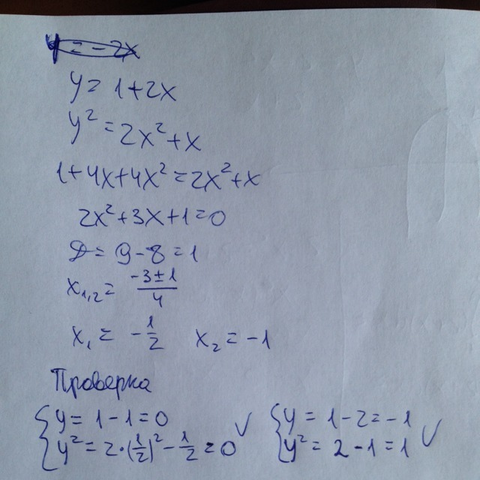 y = -2x
y = 1+2x
y² = 2x²+x
1+4x+4x² = 2x²+x
2x²+3x+1=0
D = 9-8 = 1
x₁,₂ = (-3±1)/4
x₁ = -1/2   x₂ = -1
Проверка
{ y = 1-1=0   { y = 1-2=-1
{ y² = 2·(1/2)² - 1/2 = 0 ✓   { y² = 2-1=1 ✓